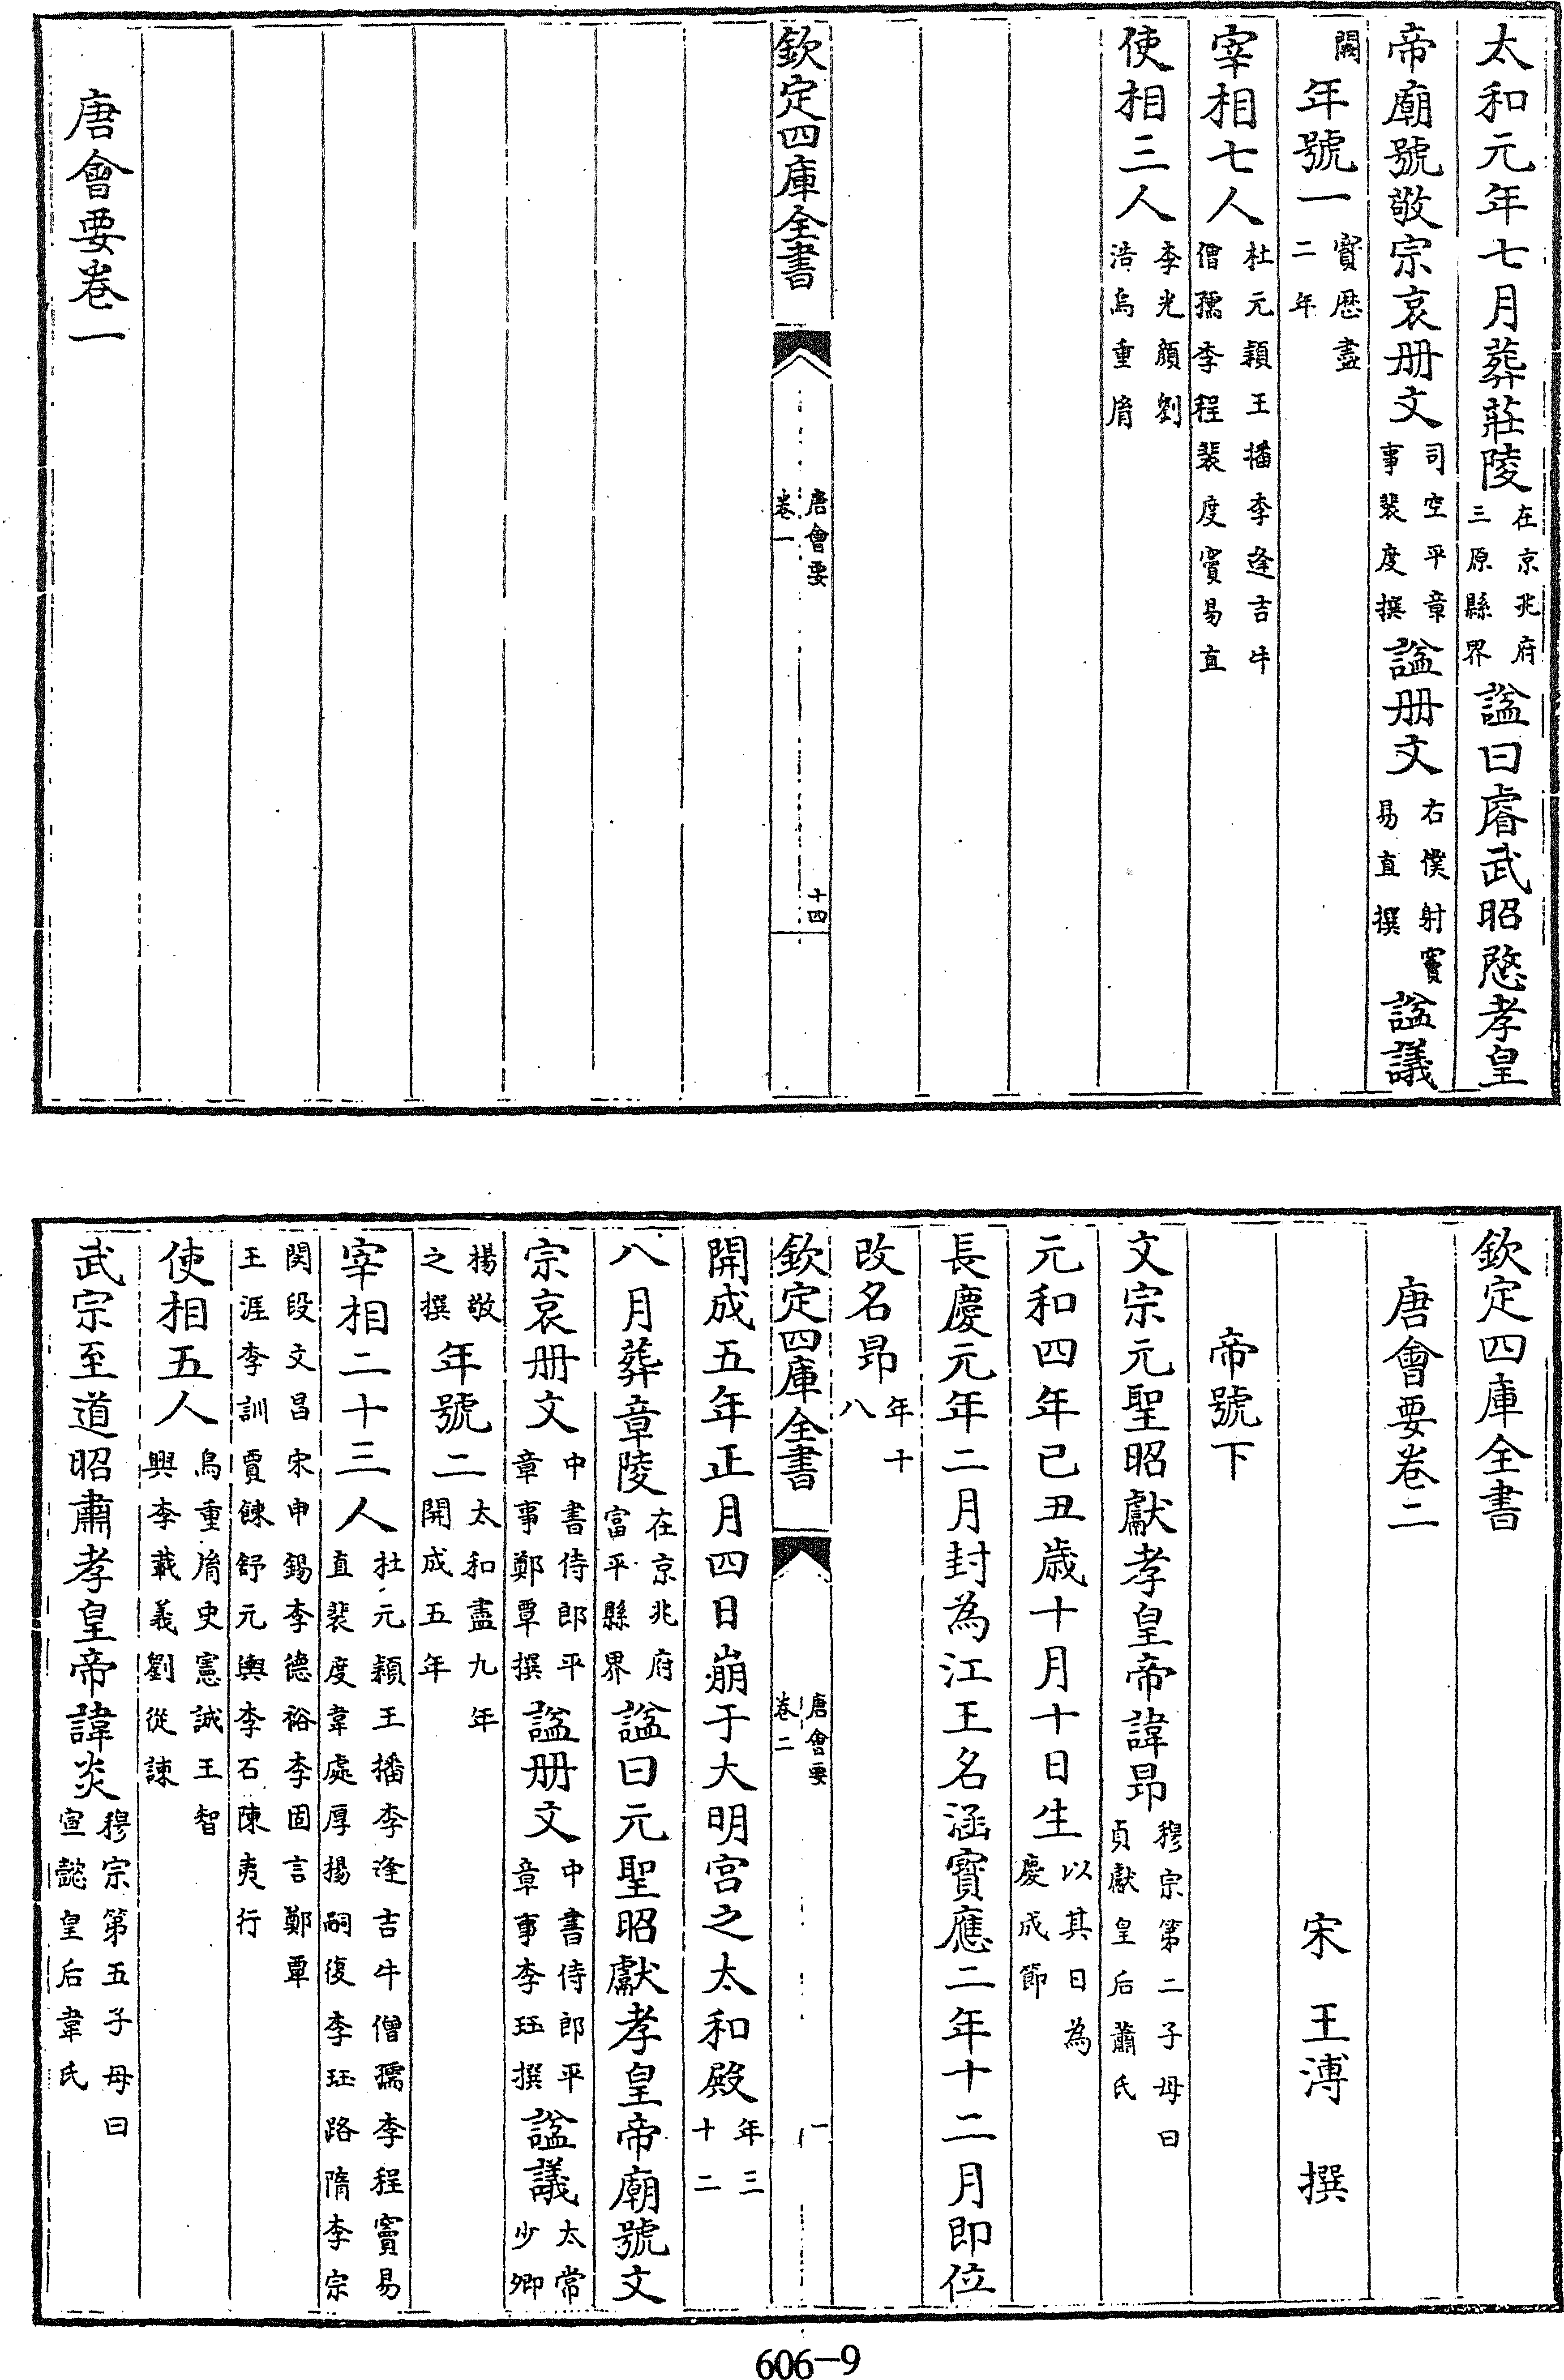 太和元年七月葬莊陵在京兆府三原縣界諡曰睿武昭愍孝皇
帝廟號敬宗哀册文司空平章事裴度撰諡册文右僕射竇易直撰諡議
闕年號一寳厯盡二年
宰相七人杜元穎王播李逢吉牛僧孺李程裴度竇易直
使相三人李光顔劉浩烏重㣧
欽定四庫全書
唐會要
卷一
十四
唐會要卷一
欽定四庫全書
唐會要卷二
宋 王溥 撰
帝號下
文宗元聖昭獻孝皇帝諱昻穆宗第二子母曰貞獻皇后蕭氏
元和四年已丑歳十月十日生以其日為慶成節
長慶元年二月封為江王名涵寳應二年十二月即位
改名昻年十八
欽定四庫全書
唐會要
卷二
一
開成五年正月四日崩于大明宫之太和殿年三十二
八月葬章陵在京兆府富平縣界諡曰元聖昭獻孝皇帝廟號文
宗哀册文中書侍郎平章事鄭覃撰諡册文中書侍郎平章事李珏撰諡議太常少卿
揚敬之撰年號二太和盡九年開成五年
宰相二十三人杜元穎王播李逢吉牛僧孺李程竇易直裴度韋處厚揚嗣復李珏路隋李宗
閔段文昌宋申錫李德裕李固言鄭覃王涯李訓賈餗舒元輿李石陳夷行
使相五人烏重㣧史憲誠王智興李載義劉從諫
武宗至道昭肅孝皇帝諱炎穆宗第五子母曰宣懿皇后韋氏
606-9